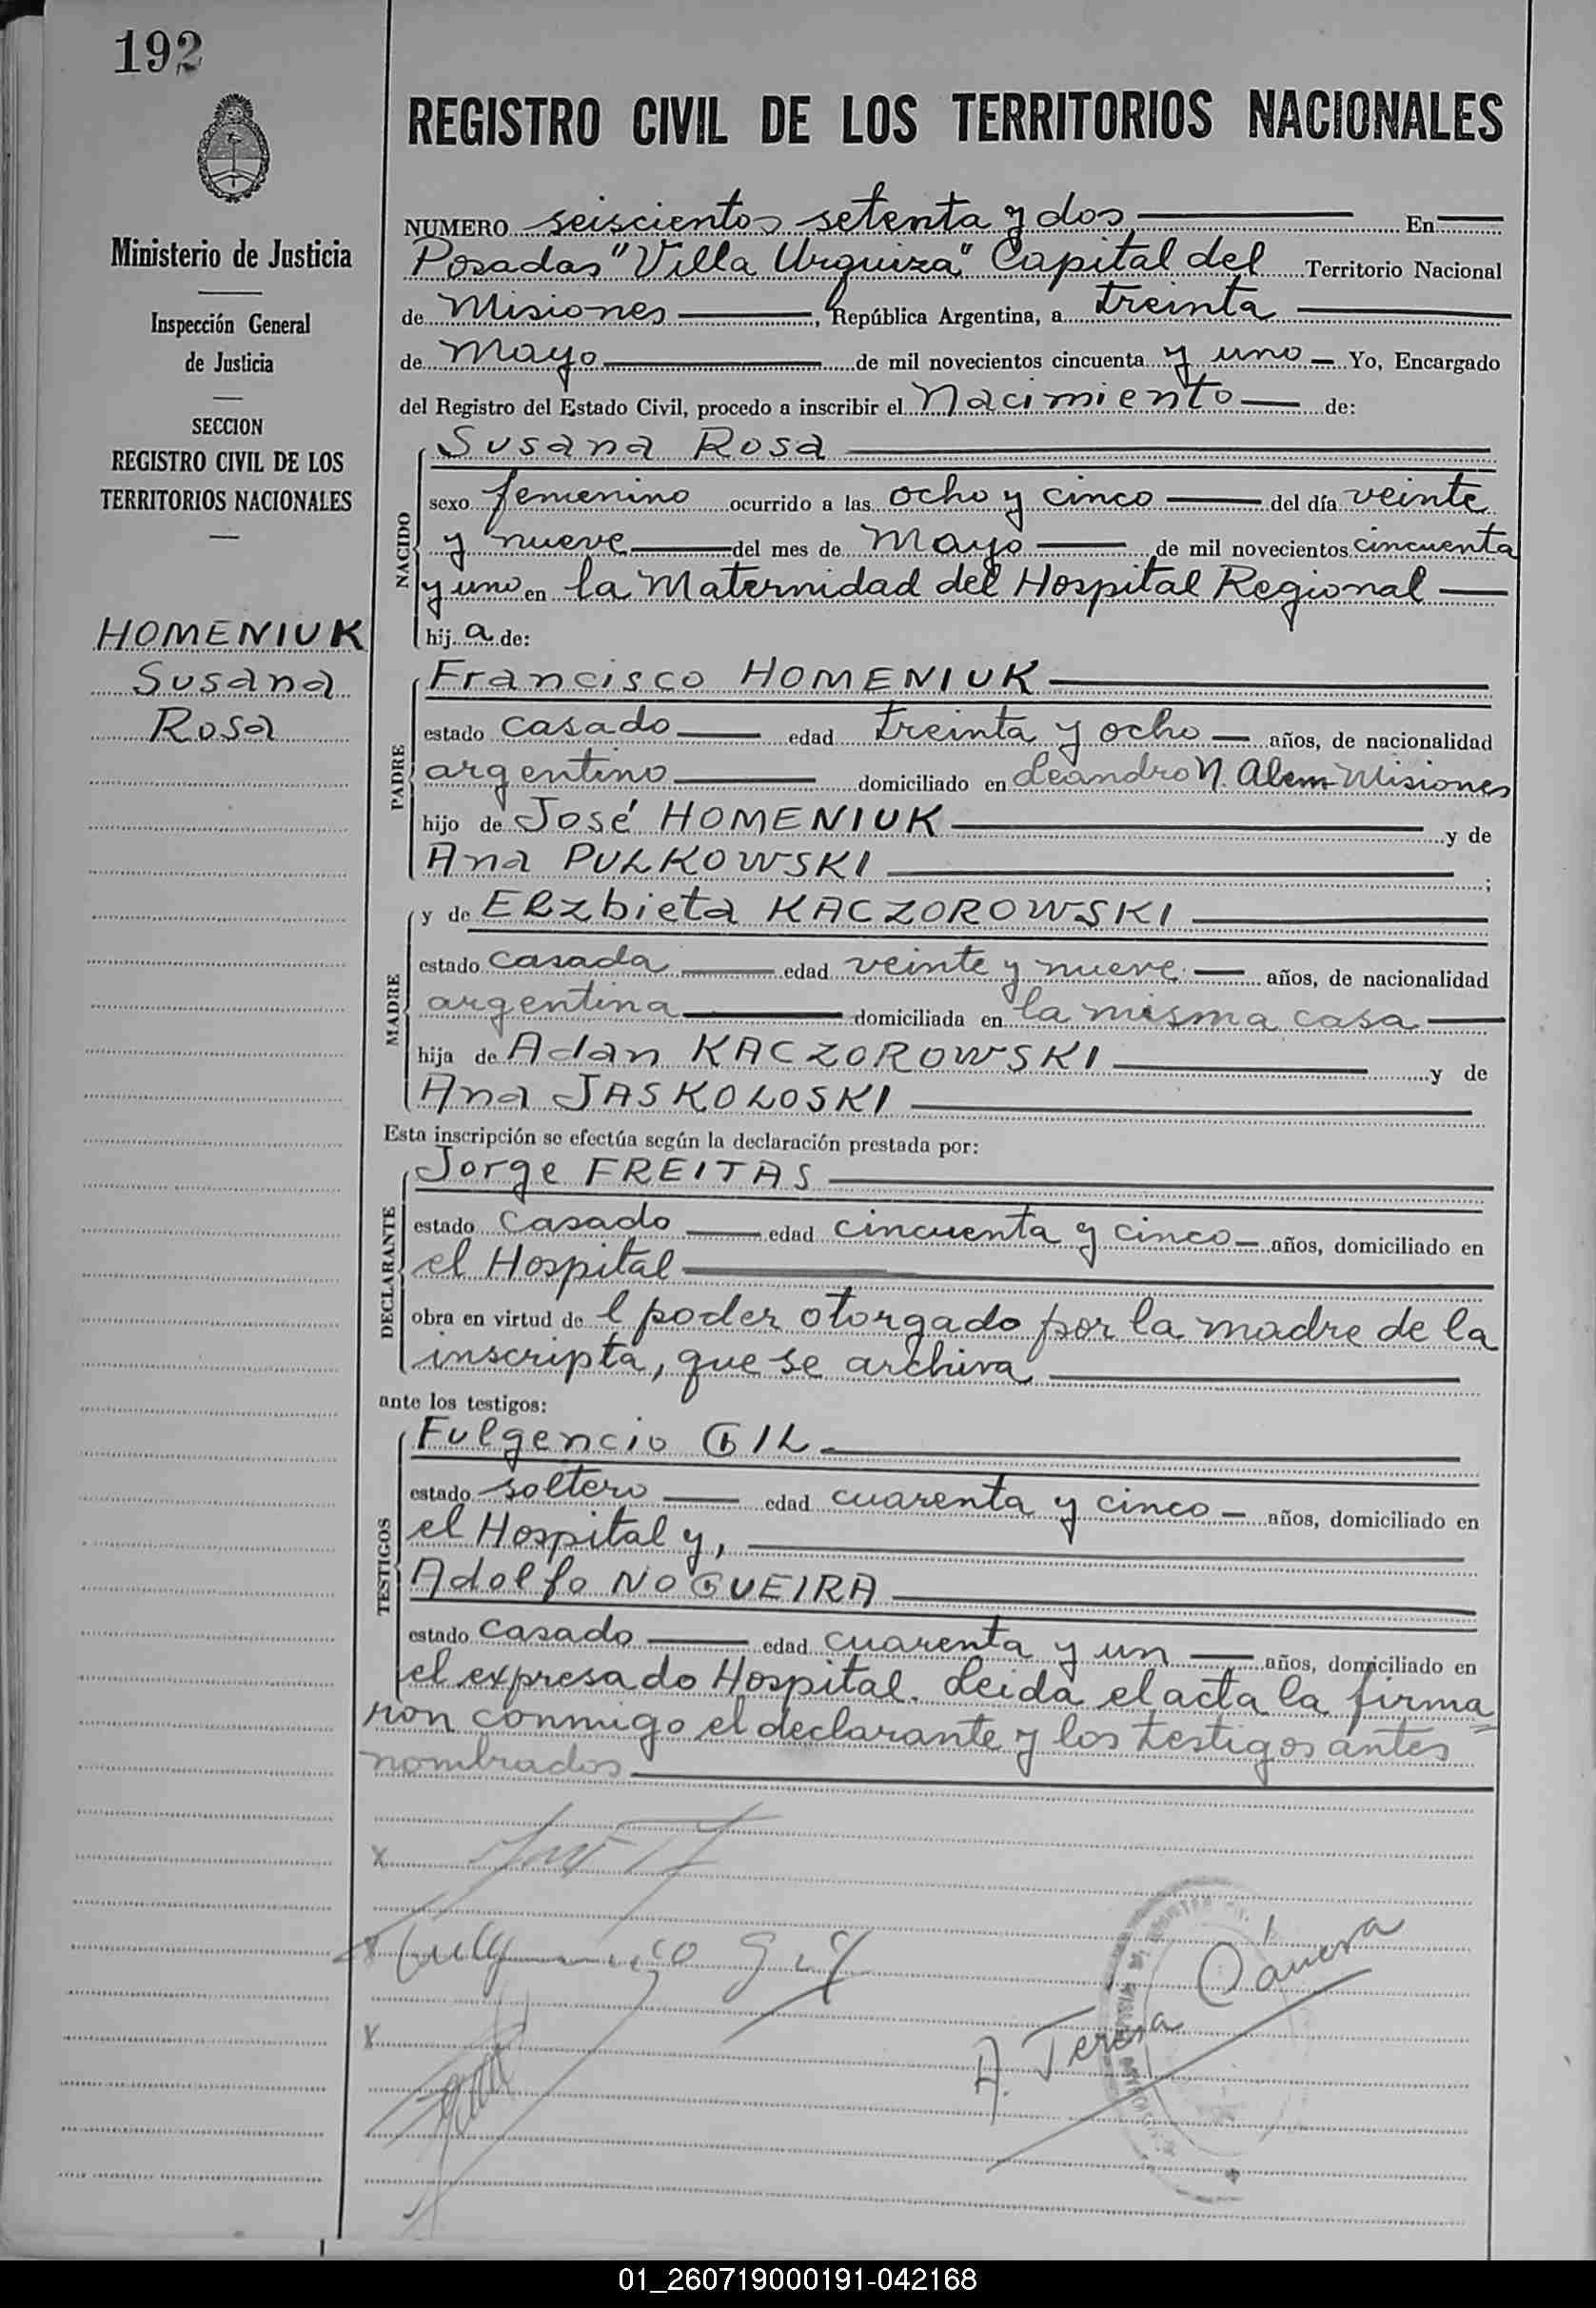 192
Ministerio de Justicia
Inspección General
de Justicia
SECCION
REGISTRO CIVIL DE LOS
TERRITORIOS NACIONALES
HOMENIUK
Susana
Rosa
REGISTRO CIVIL DE LOS TERRITORIOS NACIONALES
NUMERO seiscientos setenta y dos En
Posadas "Villa Urquiza" Capital del Territorio Nacional
de Misiones, República Argentina, a treinta
de Mayo de mil novecientos cincuenta y uno Yo, Encargado
del Registro del Estado Civil, procedo a inscribir el Nacimiento de:
NACIDO
Susana Rosa
sexo femenino ocurrido a las ocho y cinco del día veinte
y nueve del mes de Mayo de mil novecientos cincuenta
y uno en la Maternidad del Hospital Regional
hija de:
PADRE
Francisco HOMENIUK
estado casado edad treinta y ocho años, de nacionalidad
argentino domiciliado en Leandro N. Alem Misiones
hijo de José HOMENIUK y de
Ana PULKOWSKI ;
MADRE
y de Elzbieta KACZOROWSKI
estado casada edad veinte y nueve años, de nacionalidad
argentina domiciliada en la misma casa
hija de Adan KACZOROWSKI y de
Ana JASKOLOSKI
Esta inscripción se efectúa según la declaración prestada por:
DECLARANTE
Jorge FREITAS
estado casado edad cincuenta y cinco años, domiciliado en
el Hospital
obra en virtud de l poder otorgado por la madre de la
inscripta, que se archiva
ante los testigos:
TESTIGOS
Fulgencio GIL
estado soltero edad cuarenta y cinco años, domiciliado en
el Hospital y,
Adolfo NOGUEIRA
estado casado edad cuarenta y un años, domiciliado en
el expresado Hospital. Leida el acta la firma=
ron conmigo el declarante y los testigos antes
nombrados
x
x Fulgencio Gil
x
A. Teresa Cánera
01_260719000191-042168